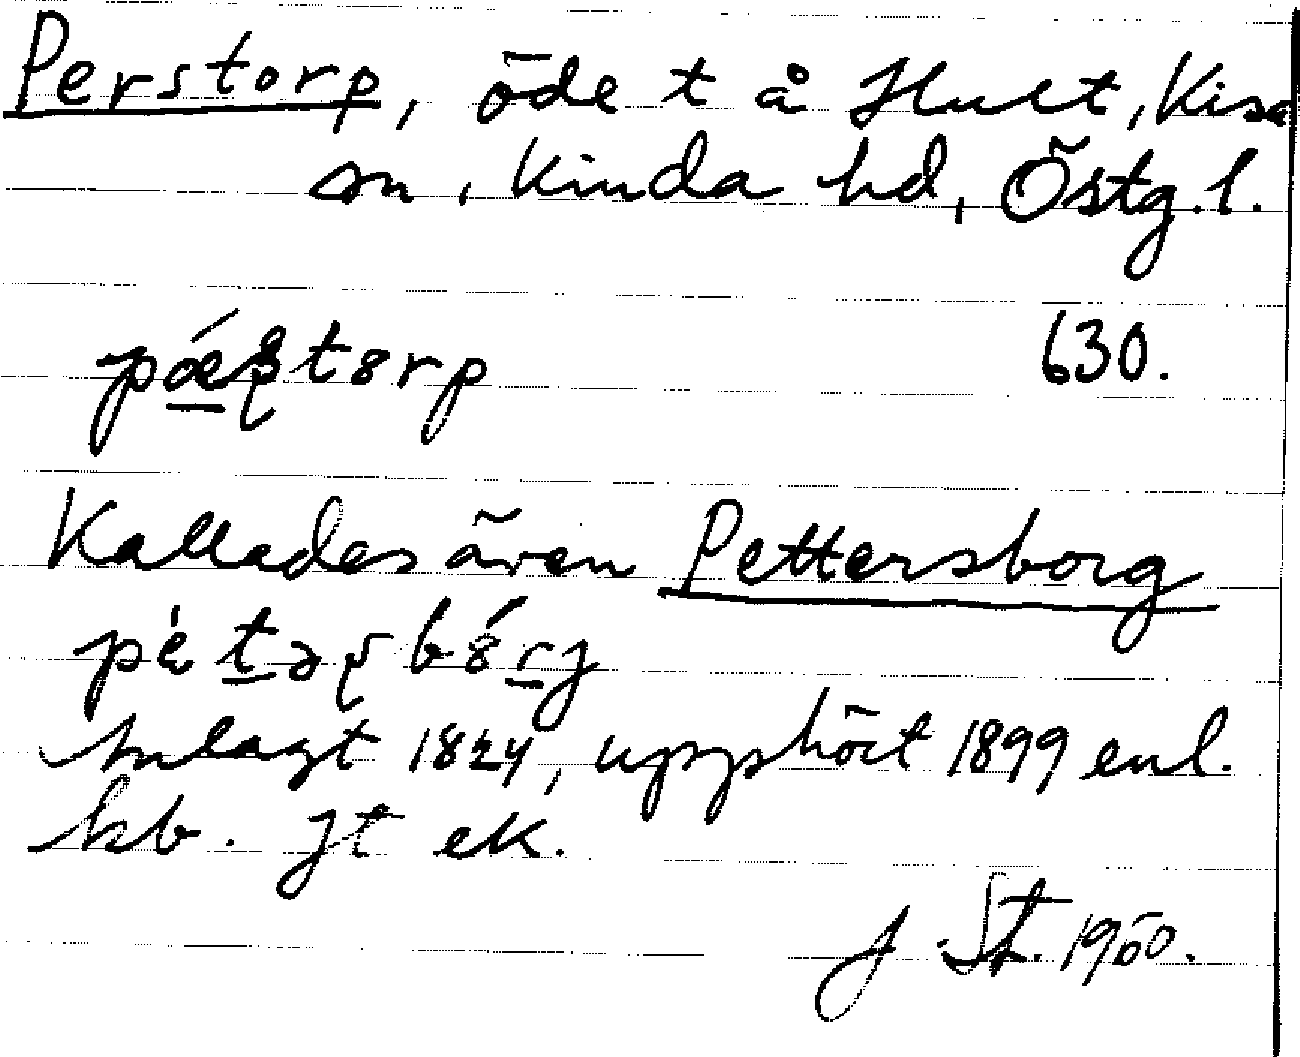 Perstorp, öde t å Hult, Kisa
sn, Kinda hd, Östg. l.
pǽʂtɵrp 630.
Kallades även Pettersborg
pètəʂbɵ́rj
Anlagt 1824, upphört 1899 enl.
kb. jt ek.
J St. 1960.